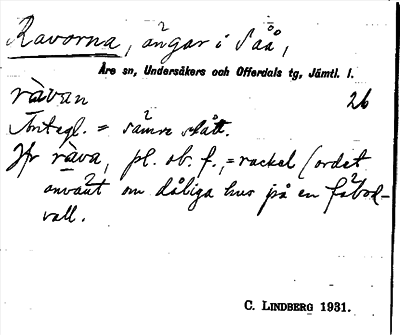 Ravorna, ängar i Såå,
Åre sn, Undersåkers och Offerdals tg, Jämtl. l.
ràvan 26
Antegl. = sämre slått.
Jfr ràva, pl. ob. f., = rackel (ordet
använt om dåliga hus på en fäbod-
vall.
C. LINDBERG 1931.